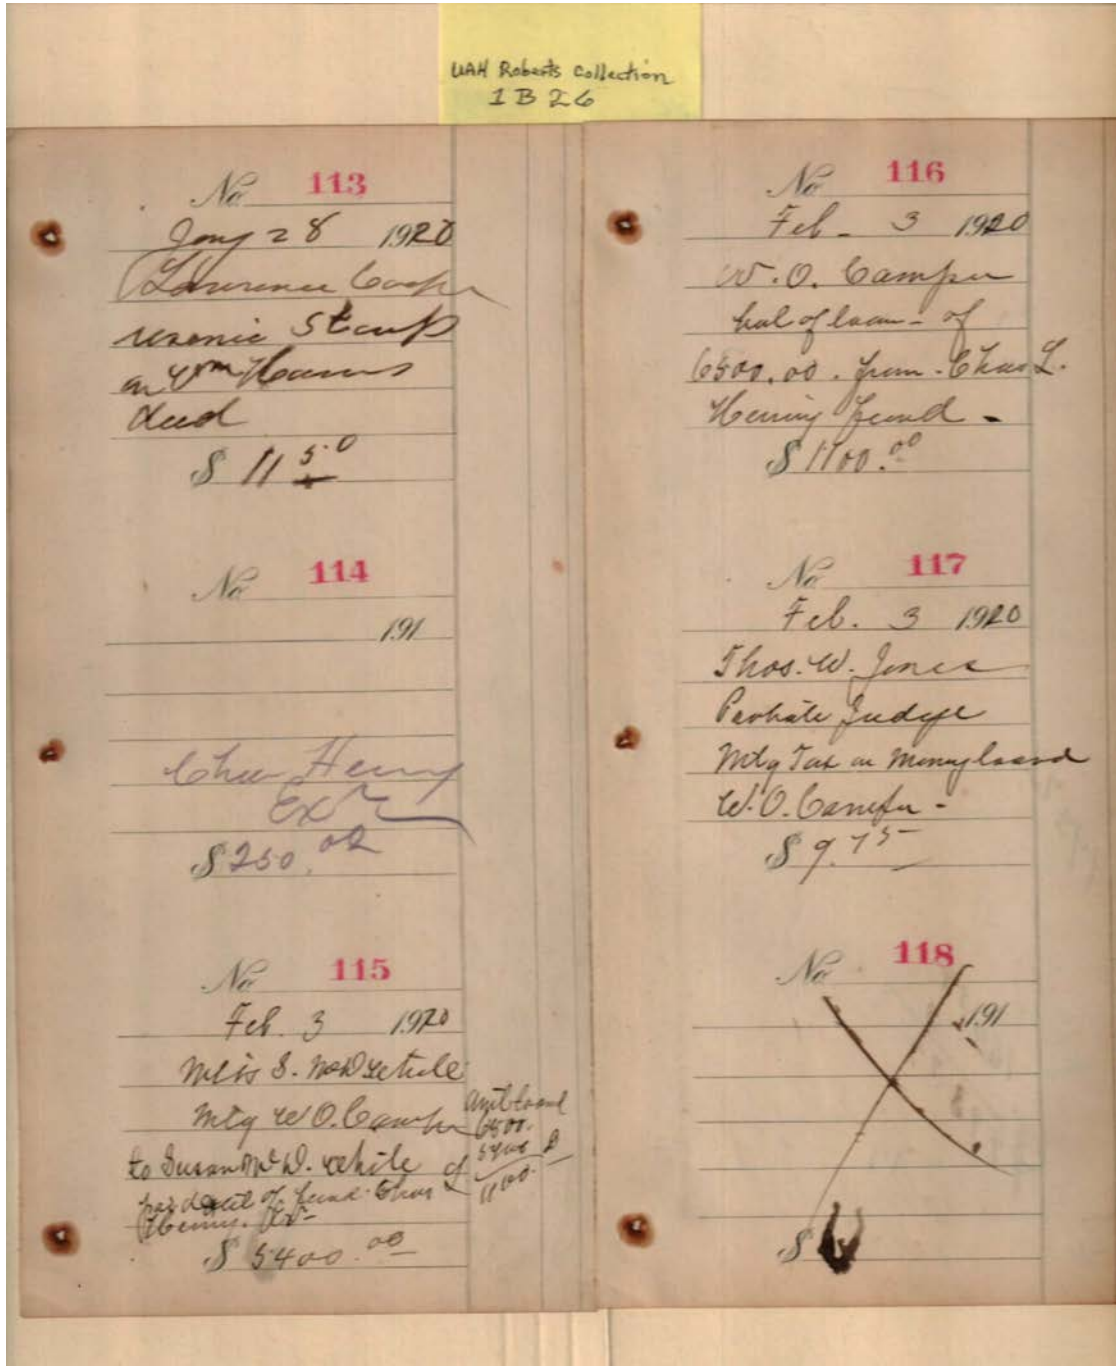 UAH Roberts Collection
1 B 26
No 113
Jany 28 1920
Lawrence Cooper
Stamp
on Wm
deed
$ 11 50
No 114
191
Chas Henry
Exr
$ 250.00
No 115
Feb. 3 1920
Miss S. McD White
Mtg W O. Camper
to Susan McD. White
paid out of fund Chas
Henry. Exr
$ 5400.00
Amt loand
6500.
5400
1100.
No 116
Feb - 3 1920
W. O. Camper
bal of loan - of
6500.00. from - Chas L.
Henry fund -
$ 1100.00
No 117
Feb. 3 1920
Thos. W. Jones
Probate Judge
Mtg Tax on Money loand
W. O. Camper -
$ 9.75
No 118
191
$